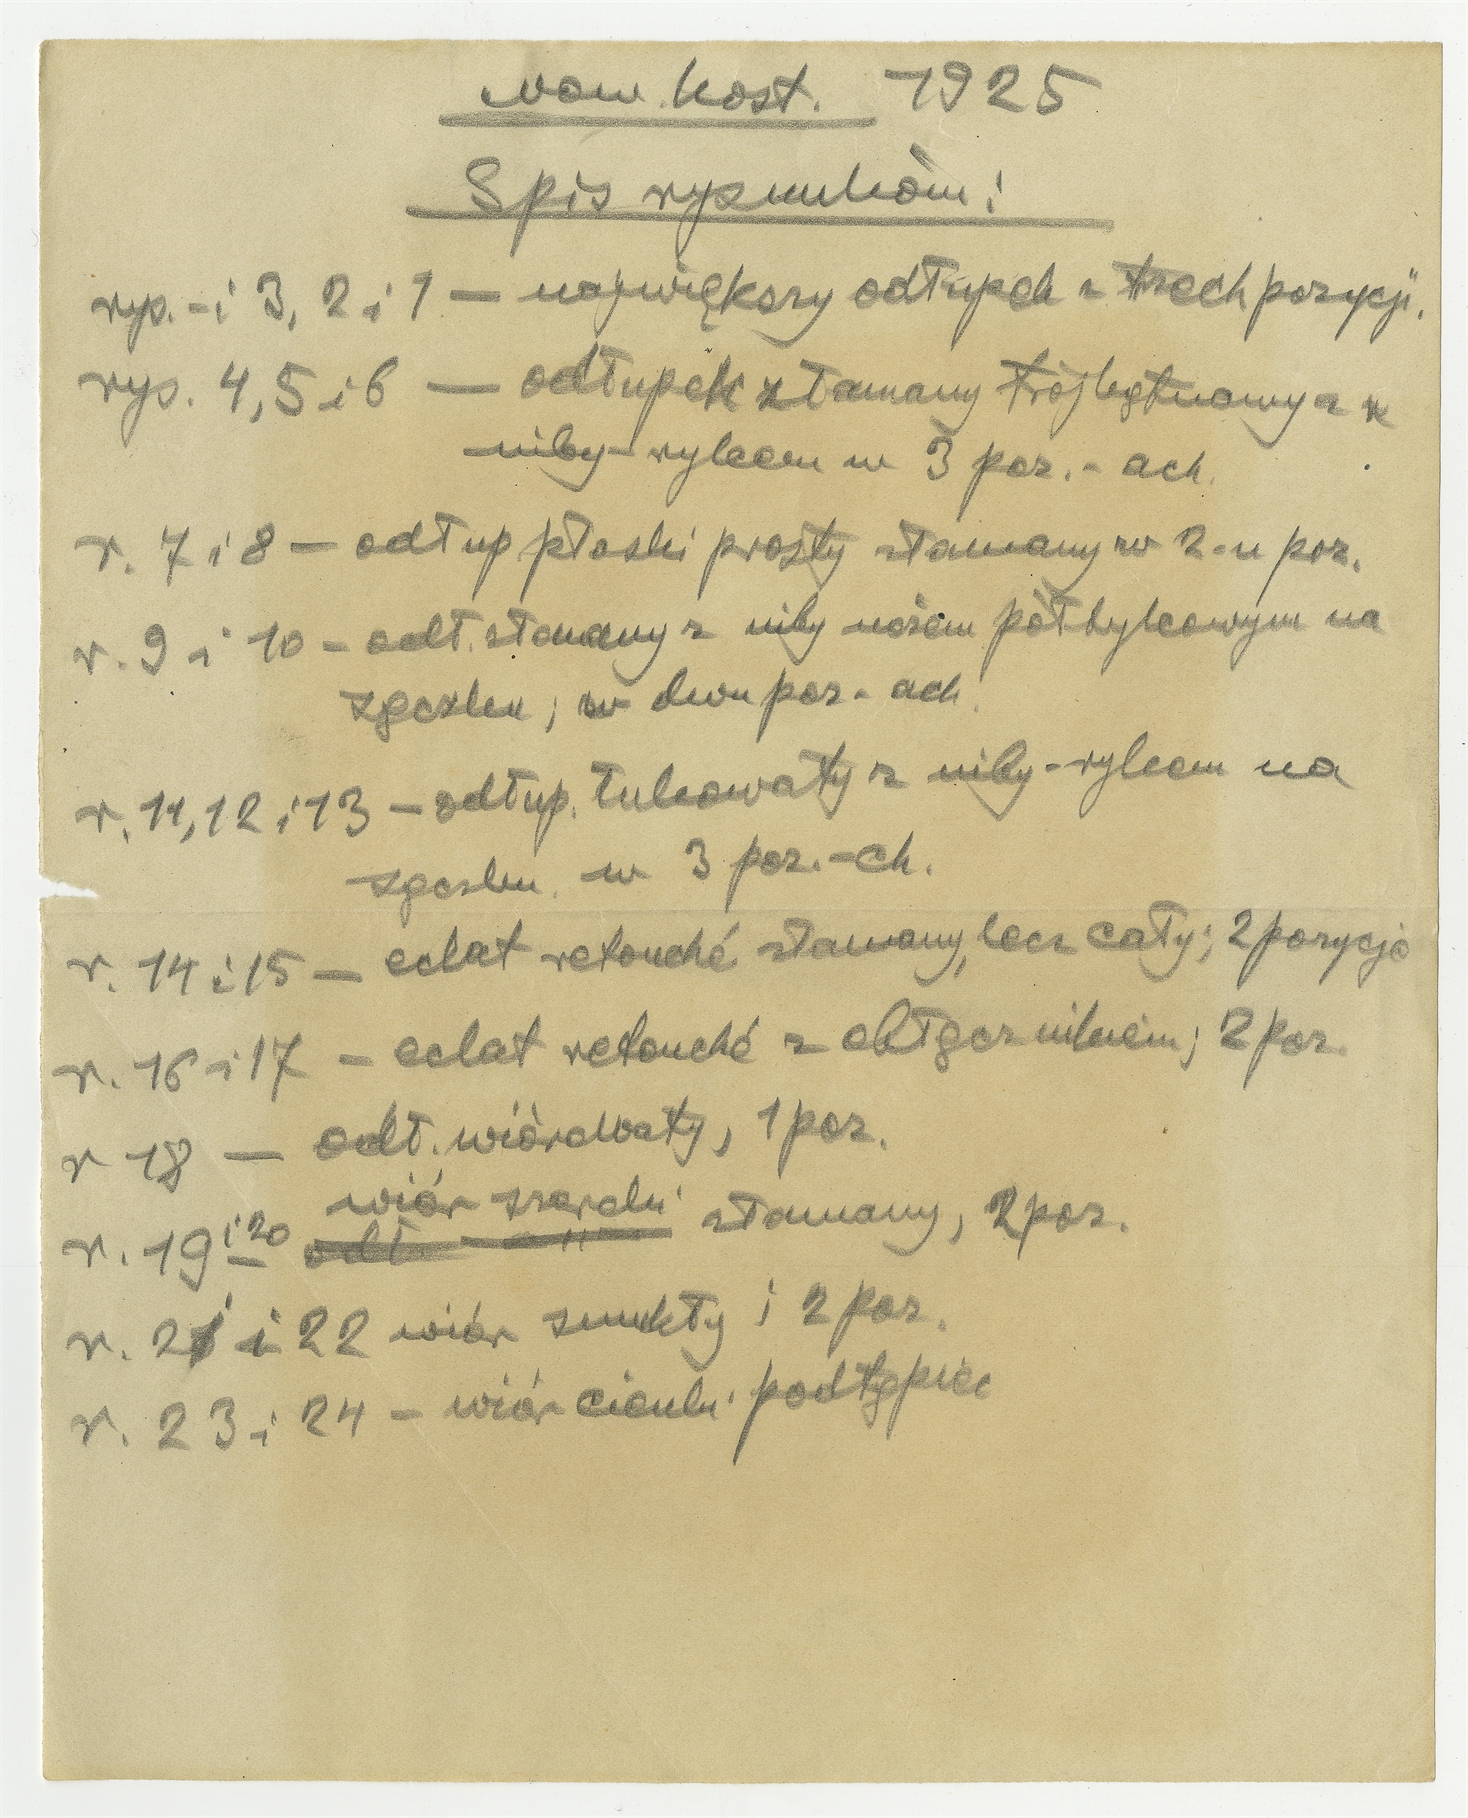 now. kost. 1925
Spis rysunków:
rys. - i 3, 2 i 1 — największy odłupek z trzech pozycji.
rys. 4, 5 i 6 — odłupek złamany trójkątnawy z
niby-rylcem w 3 poz.-ach.
r. 7 i 8 — odłup płaski prosty złamany w 2-u poz.
r. 9 i 10 - odł. złamany z niby nożem półtylcowym na
zgczku; w dwu poz-ach.
r. 11, 12 i 13 — odłup. łukowaty z niby-rylcem na
zgczku w 3 poz.-ch.
r. 14 i 15 — eclat retouché złamany, lecz cały; 2 pozycje
r. 16 i 17 — eclat retouché z; 2 poz.
r 18 — odł. wiórowaty, 1 poz.
wiór szeroki
r. 19 i 20 odł. " złamany, 2 poz.
r. 21 i 22 wiór smukły; 2 poz.
r. 23 i 24 - wiór cienki podtępiec